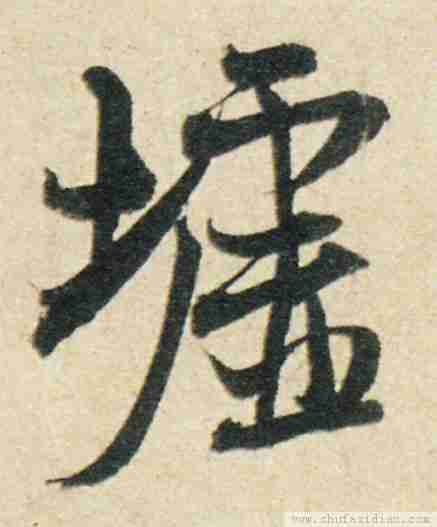 墟
www.shufazidian.com